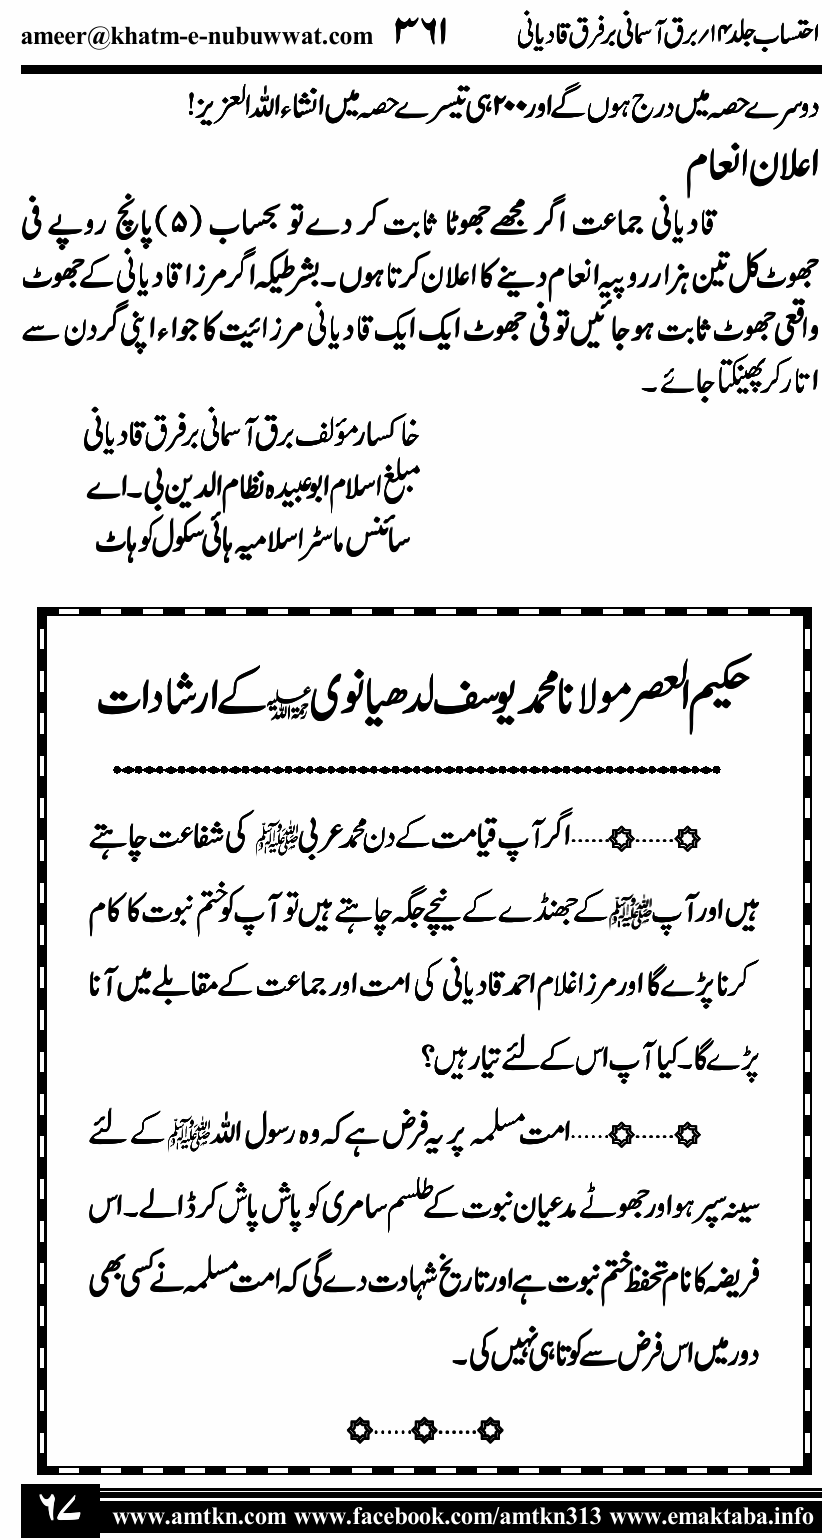 احتساب جلد ۱۴؍ برق آسمانی بر فرق قادیانی ۳۶۱ ameer@khatm-e-nubuwwat.com
دوسرے حصہ میں درج ہوں گے اور ۲۰۰ ہی تیسرے حصہ میں انشاء اللہ العزیز!
اعلان انعام
قادیانی جماعت اگر مجھے جھوٹا ثابت کر دے تو بحساب (۵) پانچ روپے فی
جھوٹ کل تین ہزار روپیہ انعام دینے کا اعلان کرتا ہوں۔ بشرطیکہ اگر مرزا قادیانی کے جھوٹ
واقعی جھوٹ ثابت ہو جائیں تو فی جھوٹ ایک ایک قادیانی مرزائیت کا جواء اپنی گردن سے
اتار کر پھینکتا جائے۔
خاکسار مؤلف برق آسمانی بر فرق قادیانی
مبلغ اسلام ابو عبیدہ نظام الدین بی۔ اے
سائنس ماسٹر اسلامیہ ہائی سکول کوہاٹ
حکیم العصر مولانا محمد یوسف لدھیانوی رحمۃ اللہ علیہ کے ارشادات
......۞......۞ اگر آپ قیامت کے دن محمد عربی ﷺ کی شفاعت چاہتے
ہیں اور آپ ﷺ کے جھنڈے کے نیچے جگہ چاہتے ہیں تو آپ کو ختم نبوت کا کام
کرنا پڑے گا اور مرزا غلام احمد قادیانی کی امت اور جماعت کے مقابلے میں آنا
پڑے گا۔ کیا آپ اس کے لئے تیار ہیں؟
......۞......۞ امت مسلمہ پر یہ فرض ہے کہ وہ رسول اللہ ﷺ کے لئے
سینہ سپر ہو اور جھوٹے مدعیان نبوت کے طلسم سامری کو پاش پاش کر ڈالے۔ اس
فریضہ کا نام تحفظ ختم نبوت ہے اور تاریخ شہادت دے گی کہ امت مسلمہ نے کسی بھی
دور میں اس فرض سے کوتاہی نہیں کی۔
۞......۞......۞
۶۷ www.amtkn.com www.facebook.com/amtkn313 www.emaktaba.info